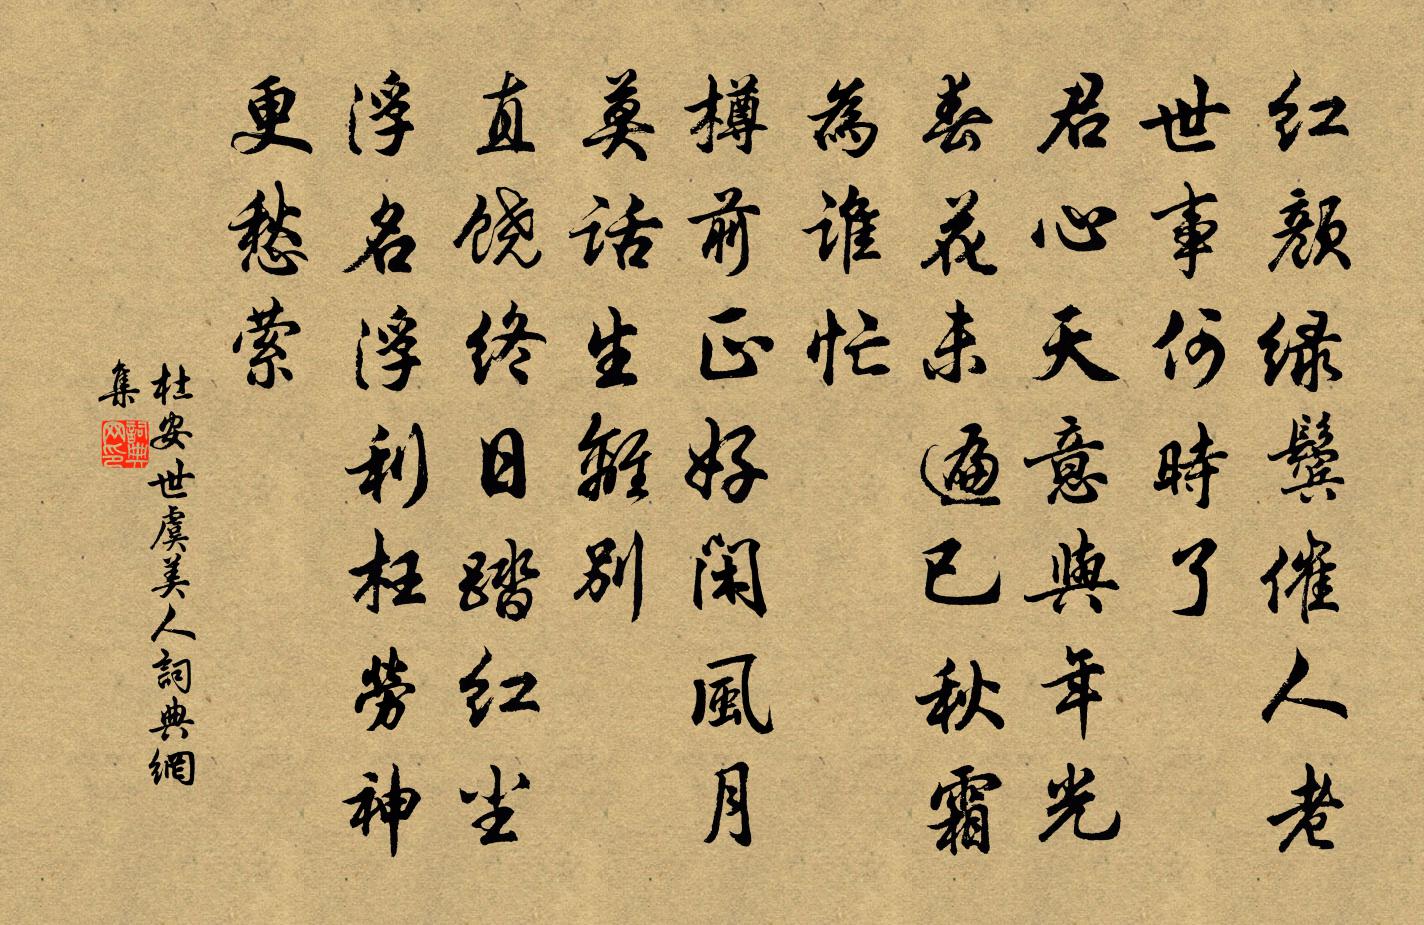 红颜绿鬓催人老
世事何时了
君心天意與年光
春花未遍已秋霜
為谁忙
樽前正好闲風月
莫话生離别
直饶终日踏红尘
浮名浮利枉劳神
更愁萦
杜安世虞美人詞典網
集
詞典網印